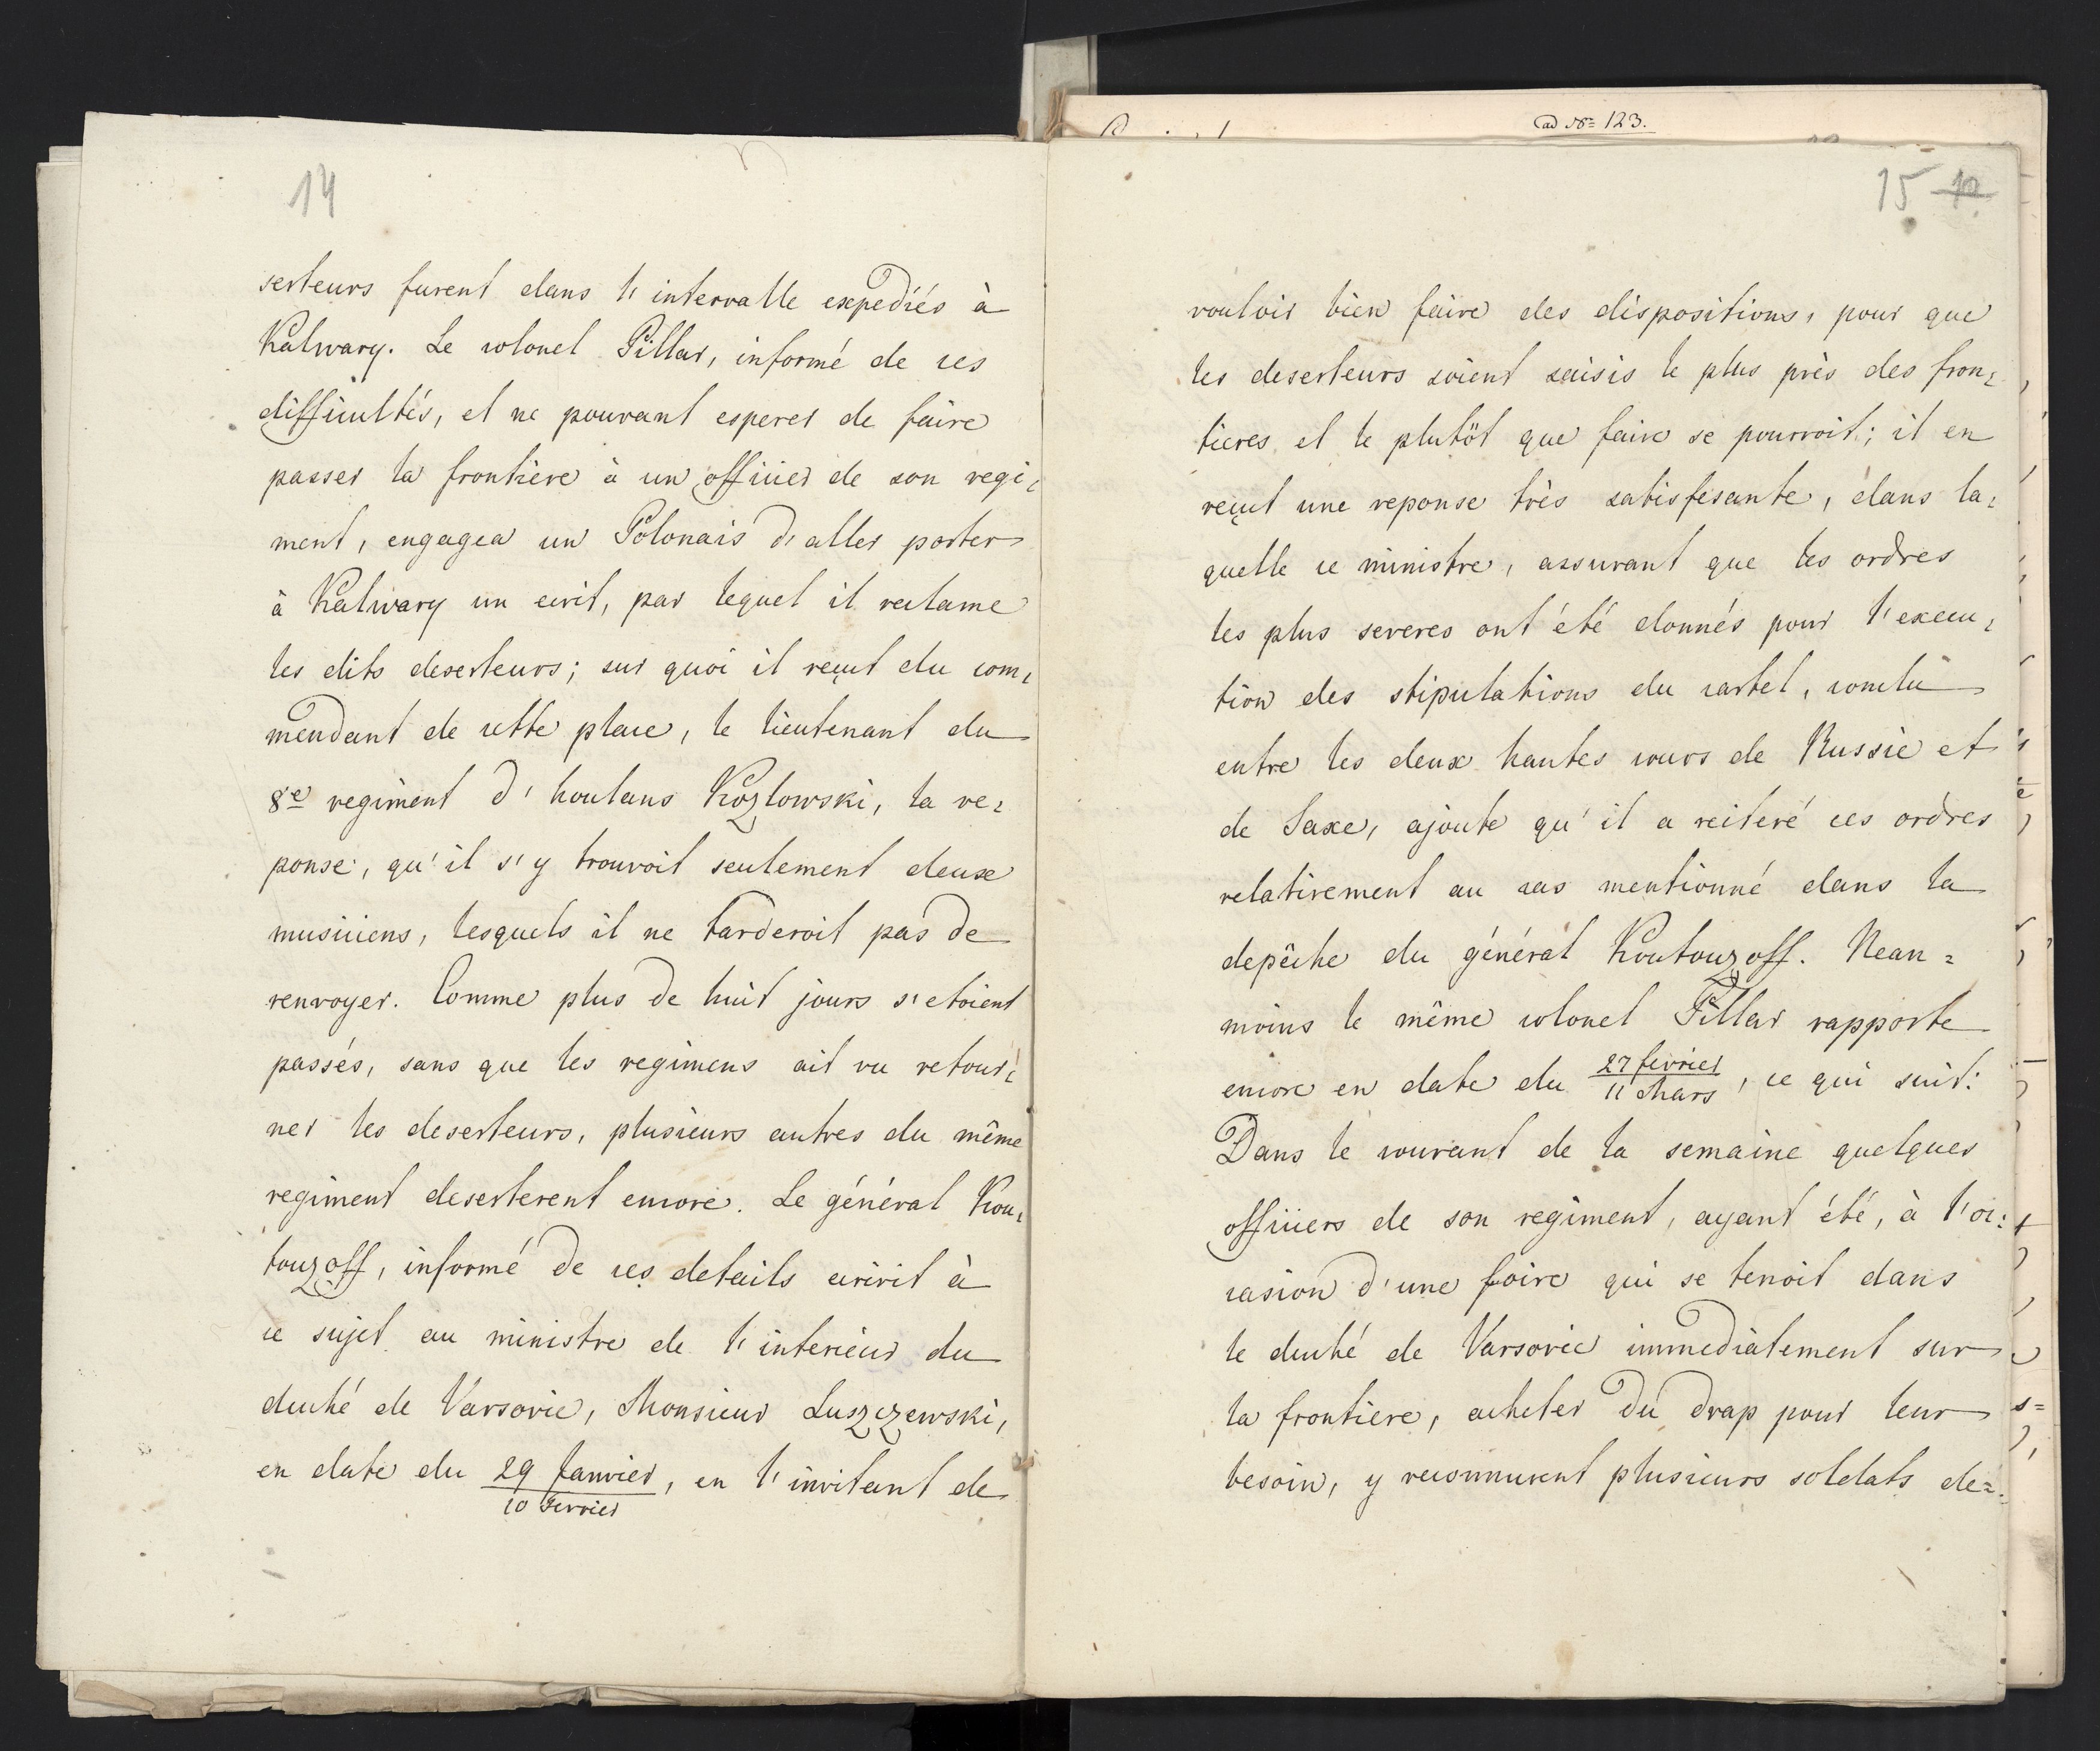 14
serteurs furent dans l'intervalle expediés à
Kalwary. Le colonel Pillar, informé de ces
difficultés, et ne pouvant esperer de faire
passer la frontière à un officier de son regi=
ment, engagea un Polonais d'aller porter
à Kalwary un ecrit, par lequel il reclame
les dits deserteurs; sur quoi il reçut du com=
mendant de cette place, le lieutenant du
8e regiment d'houlans Kozlowski, la re=
ponse:, qu'il s'y trouvoit seulement deux
musiciens, lesquels il ne tarderoit pas de
renvoyer. Comme plus de huit jours s'etoient
passés, sans que les regimens ait vu retour=
ner les deserteurs, plusieurs autres du même
regiment deserterent encore. Le général Kou=
touzoff, informé de ces details ecrivit à
ce sujet au ministre de l'interieur du
duché de Varsovie, Monsieur Luszczewski,
en date du 29 Janvier/10 Fevrier, en l'invitant de
ad No= 123.
15 12
vouloir bien faire des dispositions, pour que
les deserteurs soient saisis le plus près des fron=
tieres et le plutôt que faire se pourroit; il en
reçut une reponse très satisfesante, dans la=
quelle ce ministre, assurant que les ordres
les plus severes ont été donnés pour l'execu=
tion des stipulations du cartel, conclu
entre les deux hautes cours de Russie et
de Saxe, ajoute qu'il a reiteré ces ordres
relativement au cas mentionné dans la
depêche du général Koutouzoff. Nean=
moins le même colonel Pillar rapporte
encore en date du 27 fevrier/11 Mars, ce qui suit:
Dans le courant de la semaine quelques
officiers de son regiment, ayant été, à l'oc=
casion d'une foire qui se tenoit dans
le duché de Varsovie immediatement sur
la frontiere, acheter du drap pour leur
besoin, y reconnurent plusieurs soldats de=